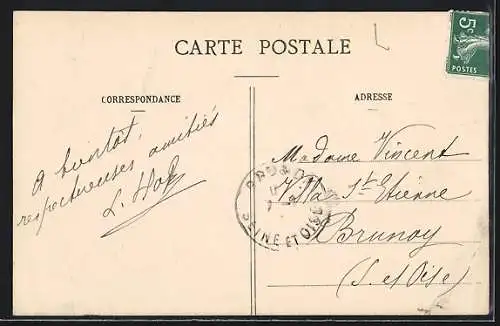 CARTE POSTALE
5c
POSTES
CORRESPONDANCE
A bientôt,
respectueuses amitiés
ADRESSE
Madame Vincent
Villa St Etienne
Brunoy
(S. et Oise)
SEINE ET OISE